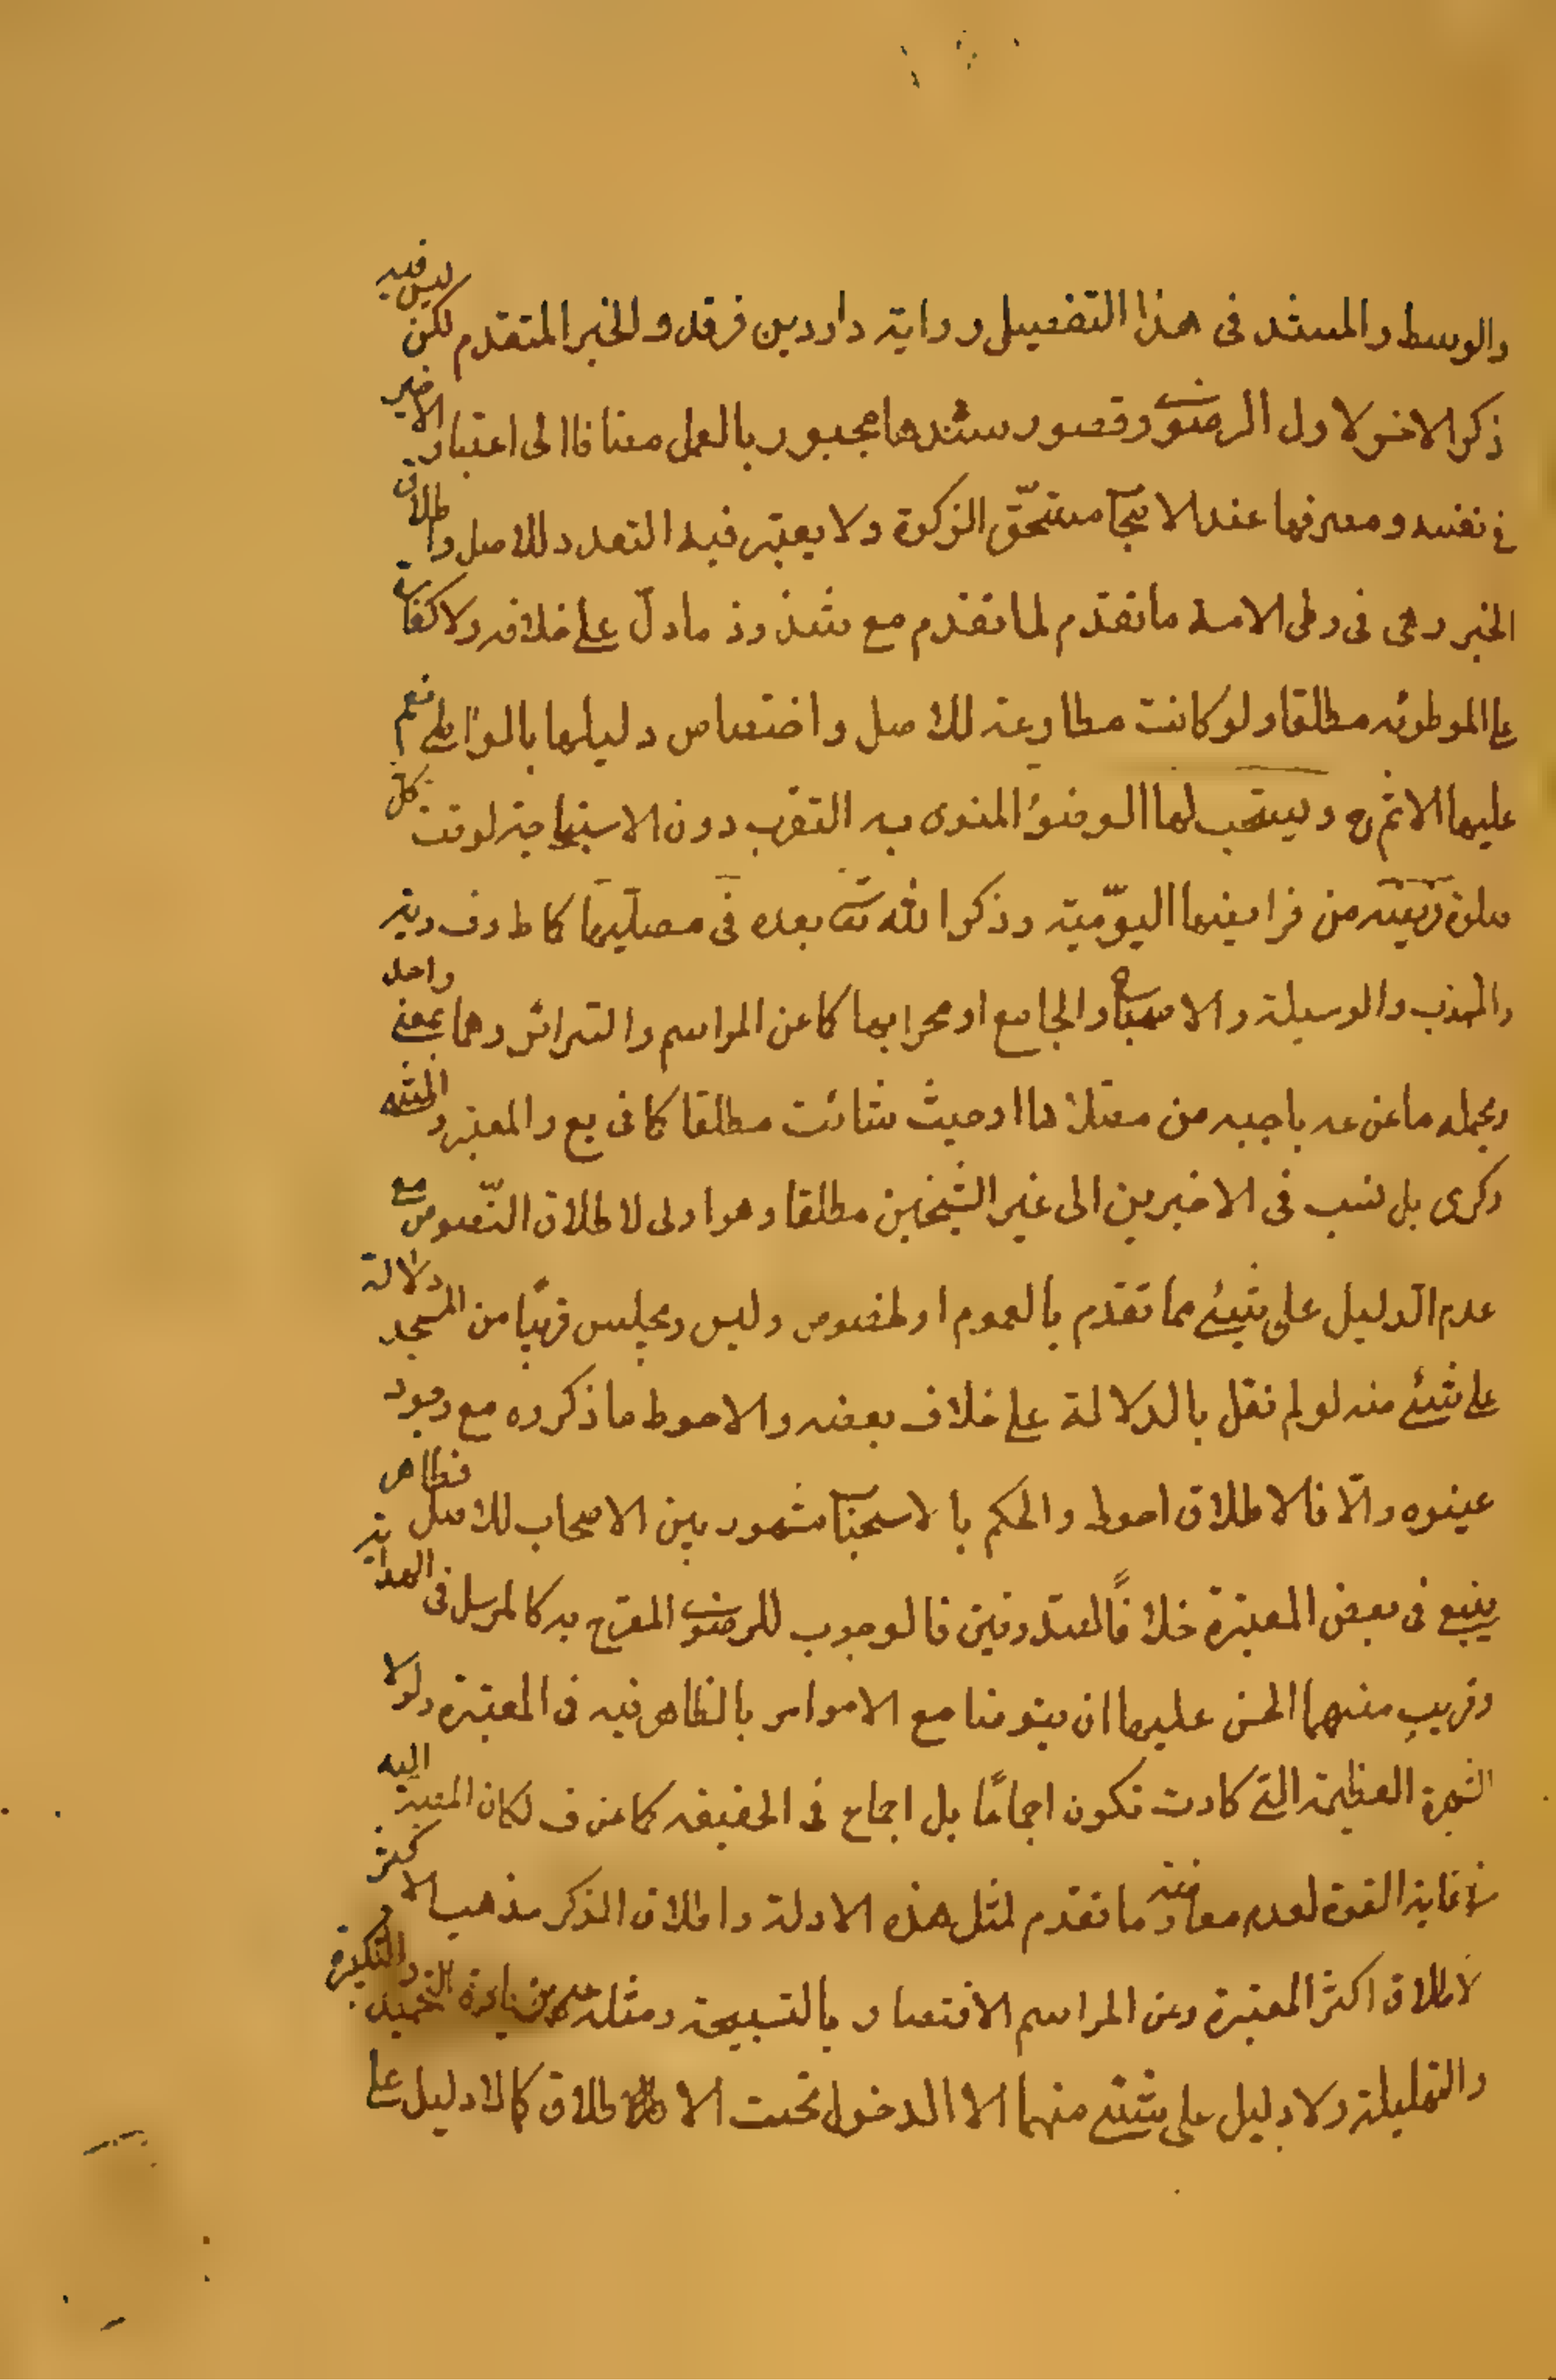 والوسط والمستند فى هذا التفصيل رواية داود بن فرقد والخبر المتقدم لكن ليس فيه
ذكر الاخر لاول الرضوى وقصور سندها مجبور بالعمل مضافا الى اعتبار الاخير
فى نفسه ومصرفها عند الاصحاب مستحق الزكوة ولا يعتبر فيه التعدد للاصل واطلاق
الخبر وهى فى وطى الامة ما تقدم لما تقدم مع شذوذ ما دل على خلافه ولا كفارة
على الموطوئه مطلقا ولو كانت مطاوعة للاصل واختصاص دليلها بالواطى نعم
عليها الاثم ح ويستحب لها الوضوء المنوى به التقرب دون الاستباحة لوقت كل
صلوة فريضة من فرايضها اليومية وذكر الله تعالى بعده فى مصليها كما ط وف وية
والمهذب والوسيلة والاصباح والجامع او محرابها كما عن المراسم والسرائر وهما بمعنى واحد
ومحمله ما عن عه باجيه من مصلاها او حيث شائت مطلقا كما فى يع والمعتبر والمنتهى
وكرى بل نسب فى الاخيرين الى غير الشيخين مطلقا وهو اولى لاطلاق النصوص مع
عدم الدليل على شيئ مما تقدم بالعموم او الخصوص وليس وتجلس قريبا من المسجد دلالة
على شيئ منه لو لم نقل بالدلالة على خلاف بعضه والاحوط ما ذكروه مع وجود
عينوه والا فالاطلاق احوط والحكم بالاستحباب مشهور بين الاصحاب للاصل فظاهر
ينبغى فى بعض المعتبرة خلافا للصدوقين فالوجوب للرضوى المصرح به كالمرسل فى الهداية
وقريب منهما الحسن عليها ان يتوضا مع الاموامر بالظاهر فيه فى المعتبرة ولولا
الشهرة العظيمة التى كادت تكون اجماعا بل اجماع فى الحقيقه كما عن ف لكان المصير اليه
فى غاية القوة لعدم معارضة ما تقدم لمثل هذه الادلة واطلاق الذكر مذهب الاكثر
لاطلاق اكثر المعتبرة وعن المراسم الاقتصار بالتسبيح ومثله عن بزيادة التحميد والتكبير
والتهليل ولا دليل على شيئ منهما الا الدخول تحت الاطلاق كما لا دليل على